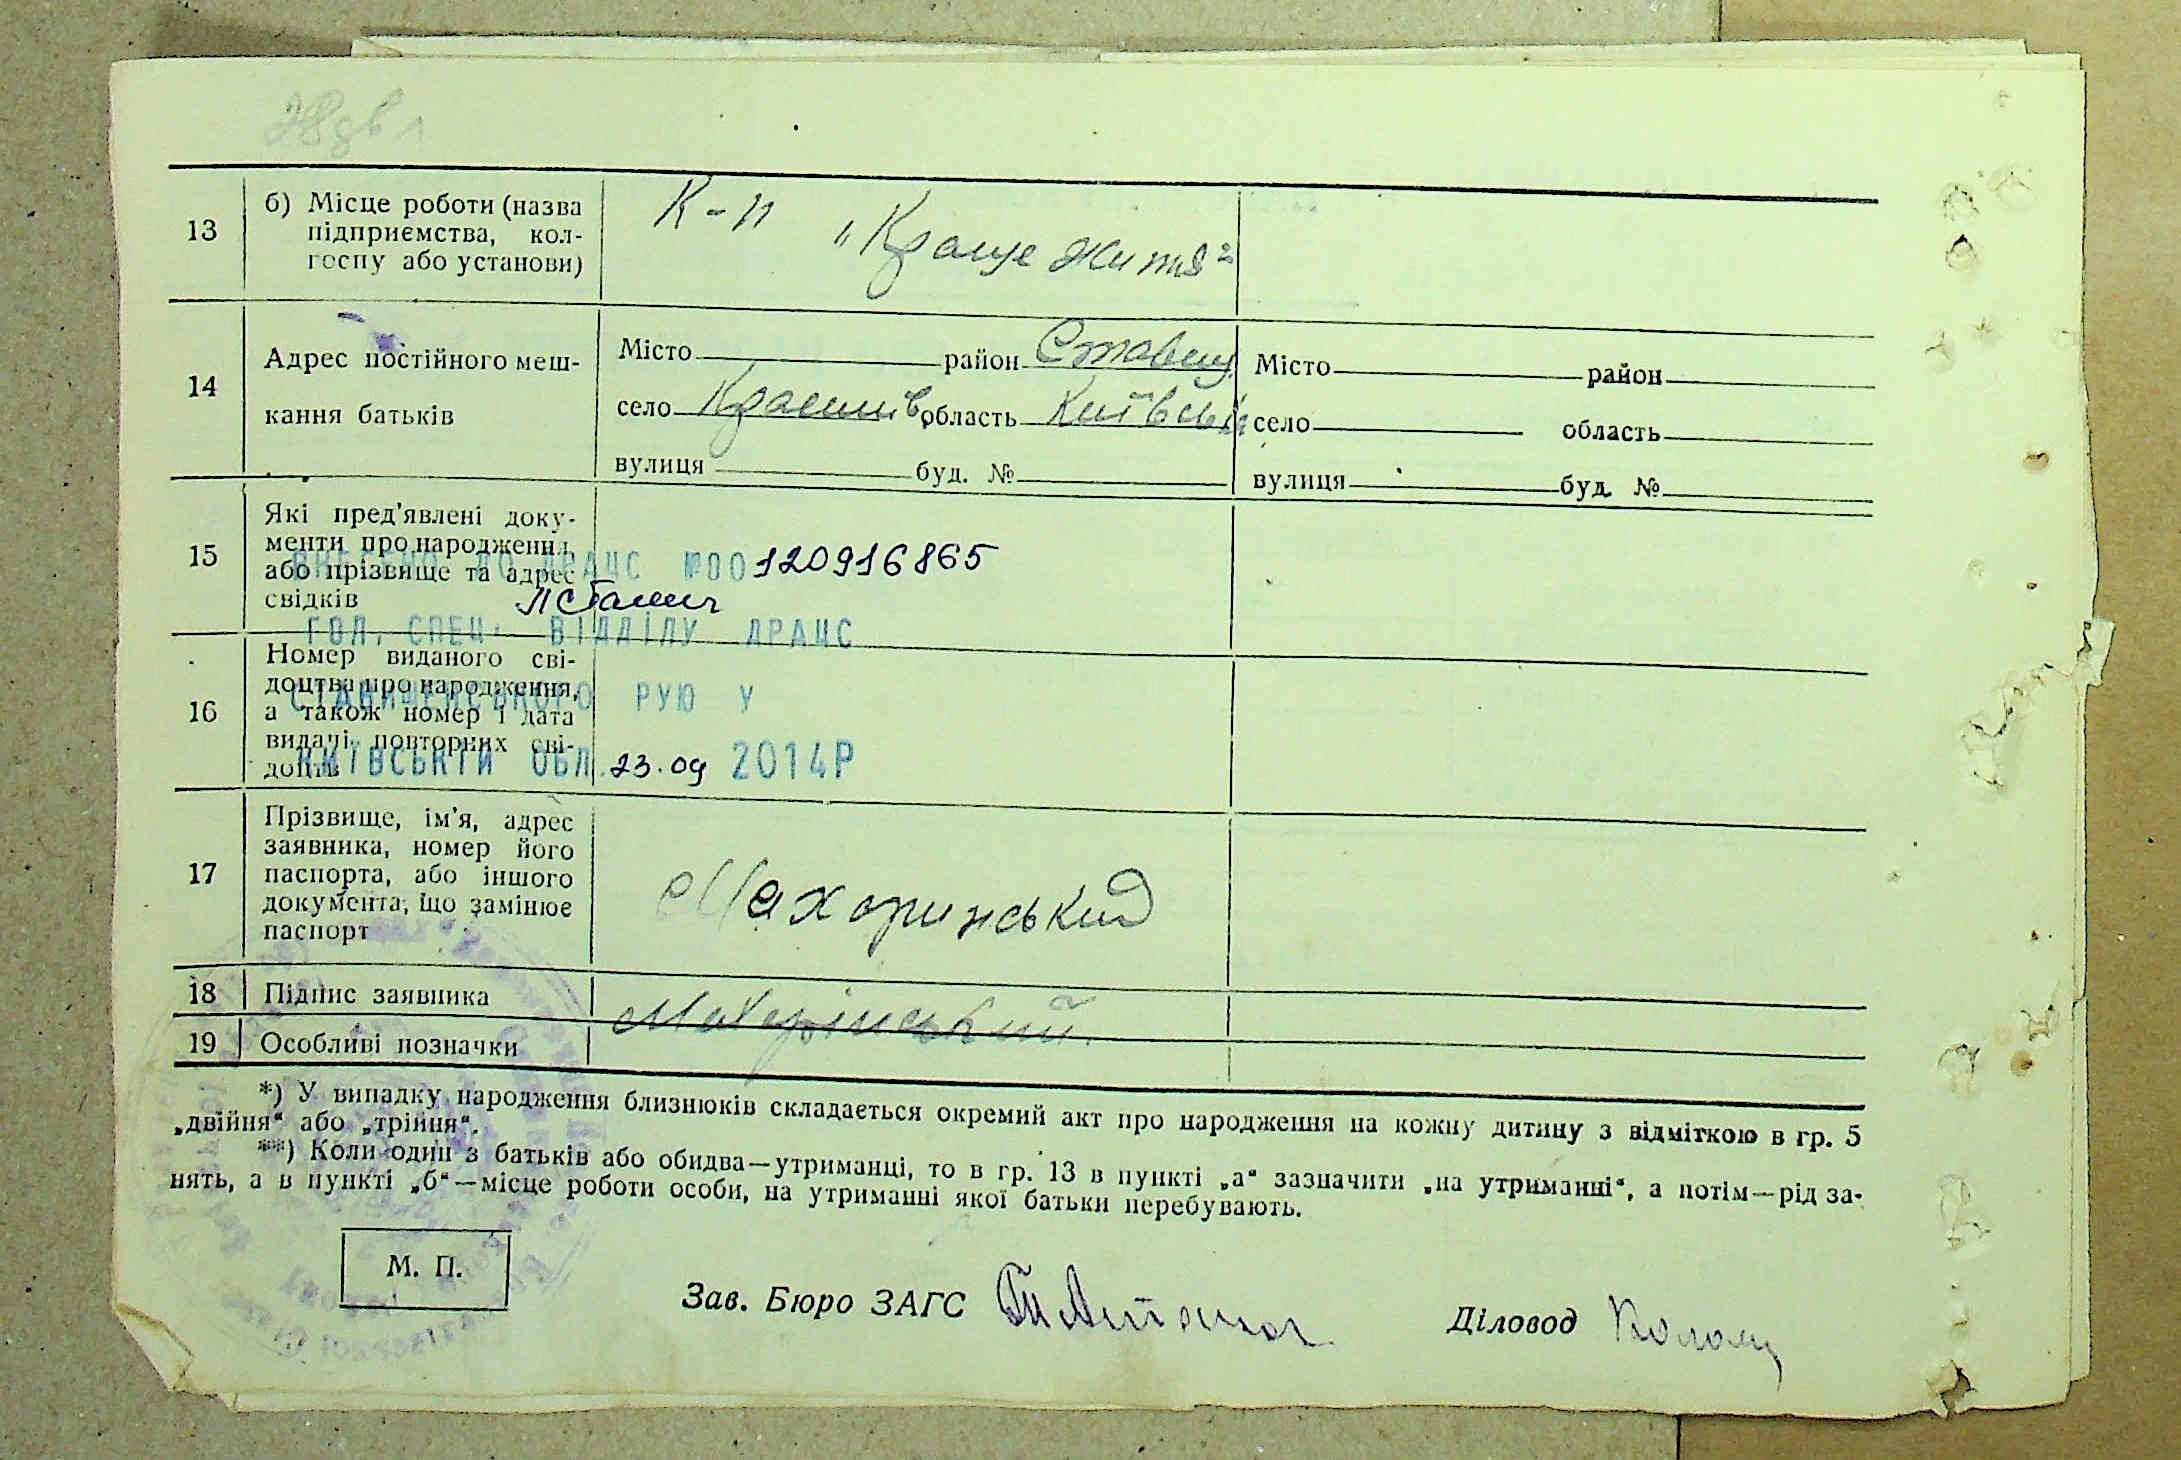 13
б) Місце роботи (назва
підприємства, кол-
госпу або установи)
К-п „Краще життя"
14
Адрес постійного меш-
кання батьків
Місто район Ставищ
село область Київськ
вулиця буд. №
Місто район
село область
вулиця буд. №
15
Які пред'явлені доку-
менти про народження,
або прізвище та адрес
свідків
ВНЕСЕНО ДО ДРАЦС №00120916865
ГОЛ. СПЕЦ. ВІДДІЛУ ДРАЦС
СТАВИЩЕНСЬКОГО РУЮ У
КИЇВСЬКІЙ ОБЛ. 23.09 2014Р
16
Номер виданого сві-
доцтва про народження,
а також номер і дата
видачі повторних сві-
доцтв
17
Прізвище, ім'я, адрес
заявника, номер його
паспорта, або іншого
документа, що замінює
паспорт
Махоринський
18
Підпис заявника
Махорінський
19
Особливі позначки
*) У випадку народження близнюків складається окремий акт про народження на кожну дитину з відміткою в гр. 5
„двійня" або „трійня".
**) Коли один з батьків або обидва—утриманці, то в гр. 13 в пункті „а" зазначити „на утриманні", а потім—рід за-
нять, а в пункті „б"—місце роботи особи, на утриманні якої батьки перебувають.
М. П.
Зав. Бюро ЗАГС
Діловод